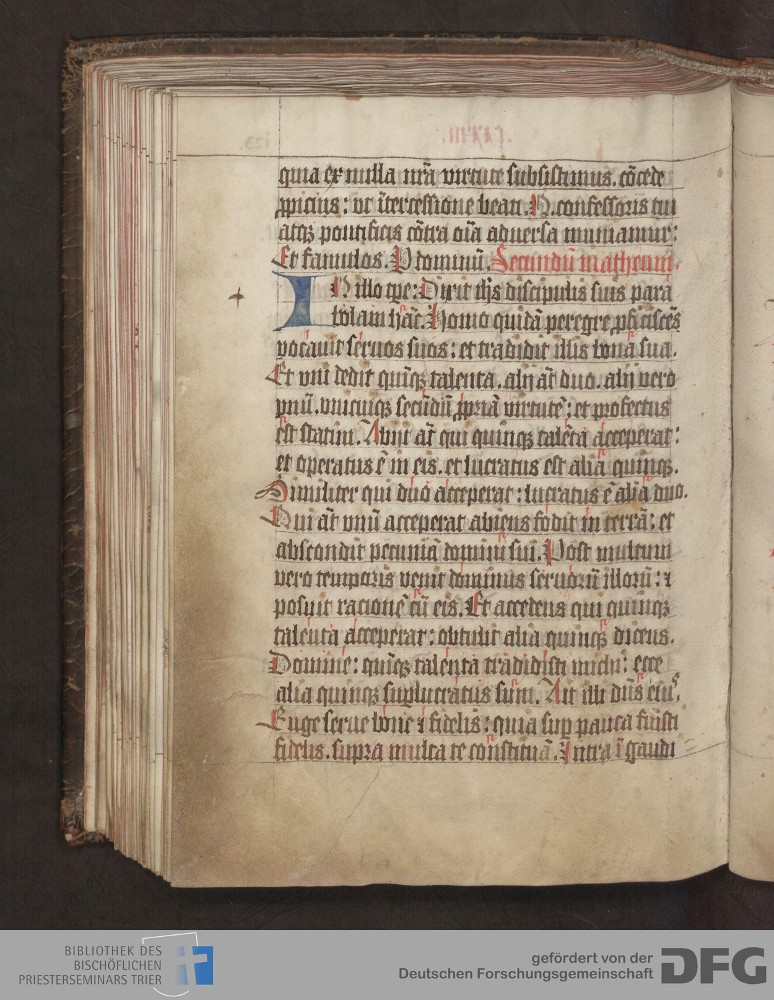 quia ex nulla nr̄a virtute subsistimus. cōcede
ꝓpicius: vt ītercessione beati .N. confessoris tui
atqꝫ pontificis cōtra oīa aduersa muniamur:
Et famulos. P dominū. Secundū matheum.
IN illo tꝑe: Dixit ih̄s discipulis suis para
bolam hāc. Homo quidā peregre ꝓficiscēs
vocauit seruos suos: et tradidit illis bona sua.
Et vni dedit quīqꝫ talenta. alij āt duo. alij vero
vnū. vnicuiqꝫ secūdū ꝓpriā virtutē: et profectus
est statim. Abijt āt qui quinqꝫ talēta acceperat:
et operatus ē in eis. et lucratus est alia quinqꝫ.
Similiter qui duo acceperat: lucratus ē alia duo.
Qui āt vnū acceperat abiens fodit in terrā: et
abscondit pecuniā domini sui. Post multum
vero temporis venit dominus seruorū illorū: ⁊
posuit racionē cū eis. Et accedens qui quinqꝫ
talenta acceperat: obtulit alia quinqꝫ dicens.
Domine: quīqꝫ talenta tradidisti michi: ecce
alia quinqꝫ suꝑlucratus sum. Ait illi dn̄s eiuꝰ.
Euge serue bone ⁊ fidelis: quia suꝑ pauca fuisti
fidelis. supra multa te constituā. Intra ī gaudi
BIBLIOTHEK DES
BISCHÖFLICHEN
PRIESTERSEMINARS TRIER
gefördert von der
Deutschen Forschungsgemeinschaft DFG